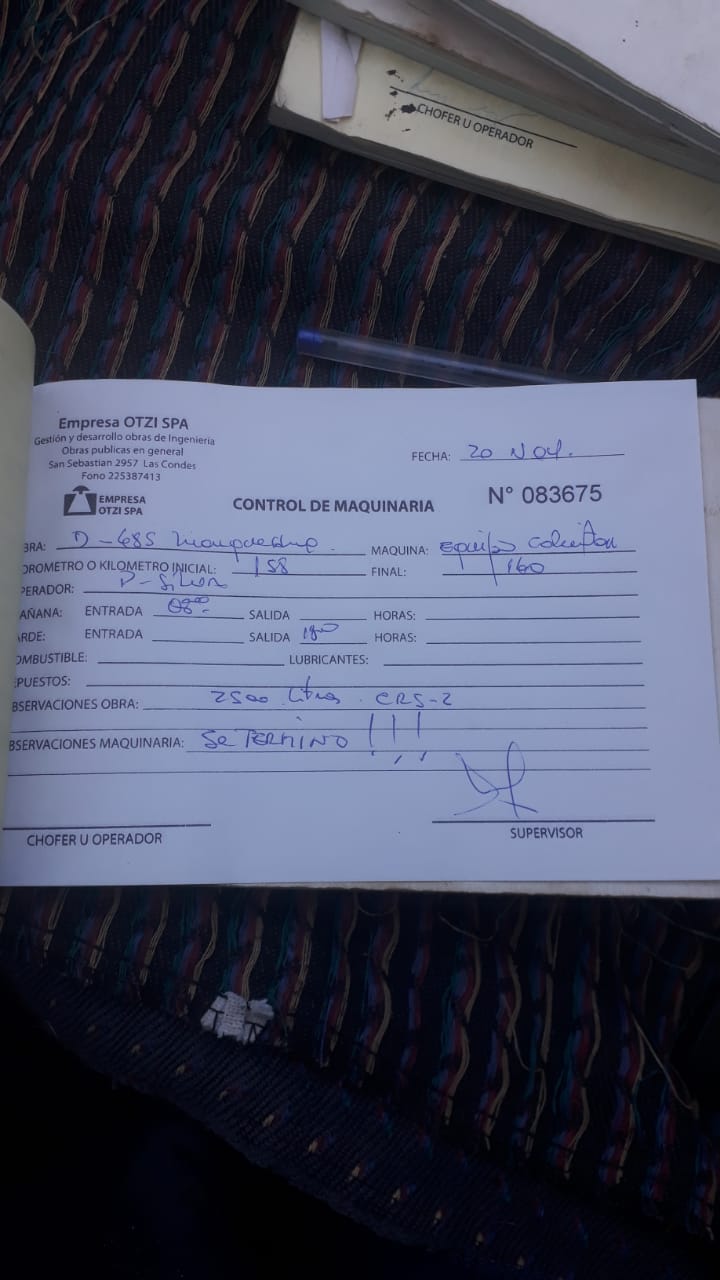 CHOFER U OPERADOR
Empresa OTZI SPA
Gestión y desarrollo obras de Ingenieria
Obras publicas en general
San Sebastian 2957 Las Condes
Fono 225387413
EMPRESA
OTZI SPA
FECHA: 20 Nov.
CONTROL DE MAQUINARIA
N° 083675
BRA: D-685 MAQUINA: equipo
OROMETRO O KILOMETRO INICIAL: 158 FINAL: 160
PERADOR: P-Silva
AÑANA: ENTRADA 08⁰⁰ SALIDA HORAS:
RDE: ENTRADA SALIDA 18⁰⁰ HORAS:
OMBUSTIBLE: LUBRICANTES:
PUESTOS:
BSERVACIONES OBRA: 2500 litros. CRS-2
BSERVACIONES MAQUINARIA: Se TERMINO !!!
CHOFER U OPERADOR
SUPERVISOR